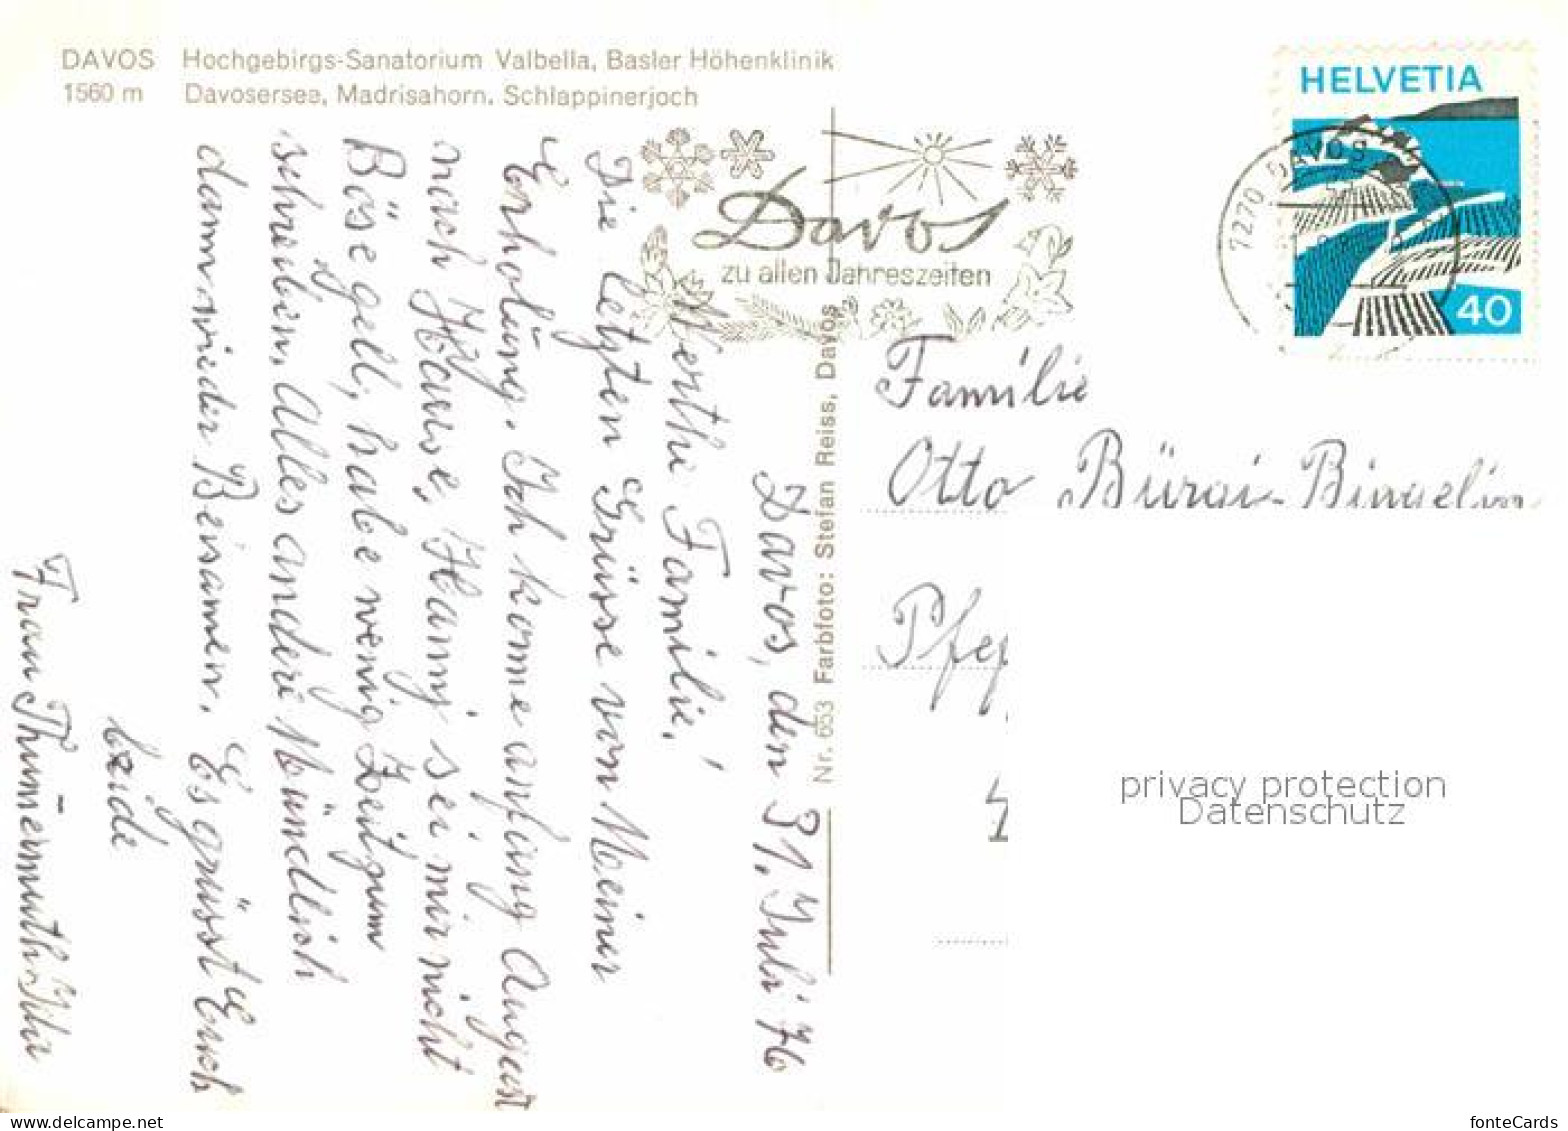 DAVOS Hochgebirgs-Sanatorium Valbella, Basler Höhenklinik
1560 m Davosersee, Madrisahorn, Schlappinerjoch
Davos
zu allen Jahreszeiten
HELVETIA
40
7270 DAVOS
Nr. 653 Farbfoto: Stefan Reiss, Davos
Davos, den 31. Juli 76
Werthe Familie!
Die letzten Grüsse von Meiner
Erholung. Ich komme anfang August
nach Hause, Hanj sei mir nicht
Böse gell, habe wenig Zeit zum
schreiben, Alles andere Mündlich
dann wieder Beisamen. Es grüsst Euch
beide
Frau
Familie
Otto Bürgi-Bingelin
privacy protection
Datenschutz
fonteCards